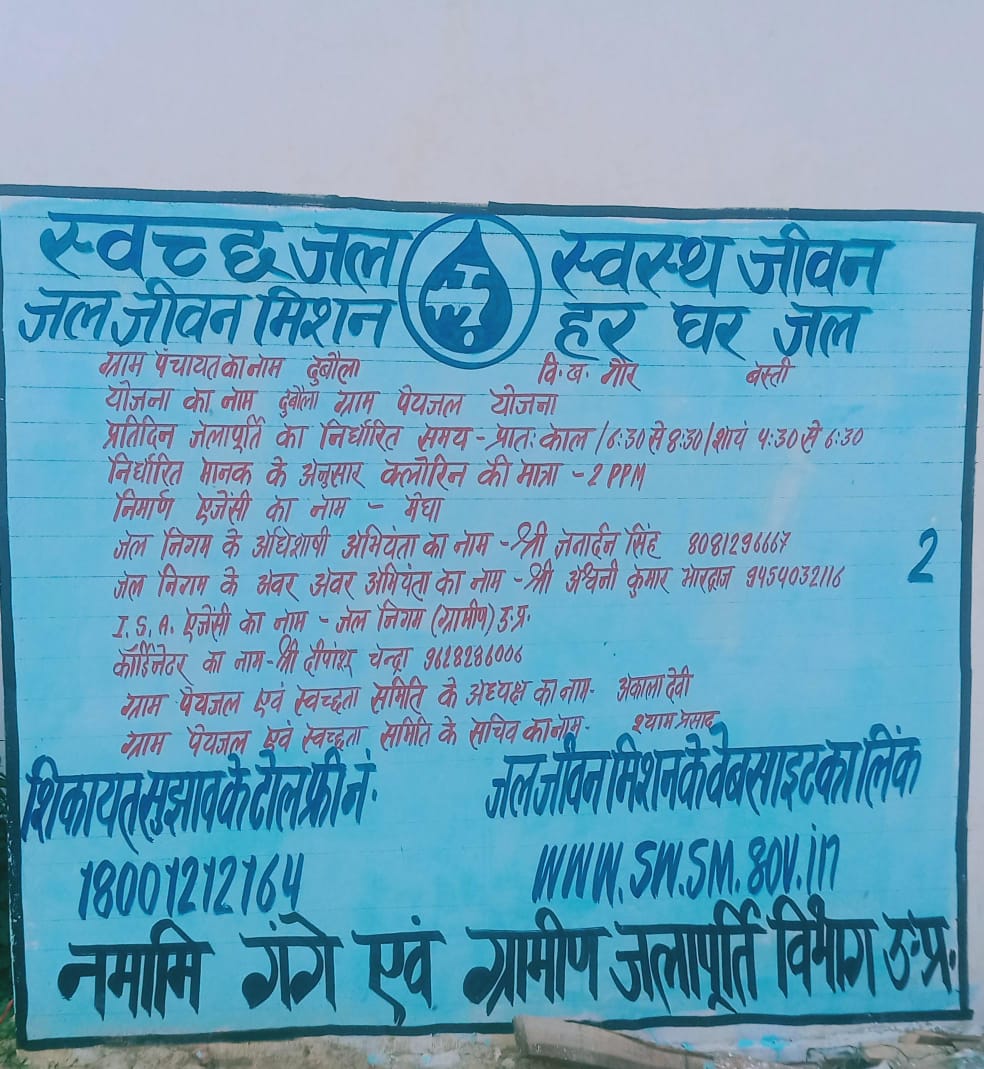 स्वच्छ जल स्वस्थ जीवन
जल जीवन मिशन हर घर जल
ग्राम पंचायत का नाम दुबौला वि.ख. गौर बस्ती
योजना का नाम दुबौला ग्राम पेयजल योजना
प्रतिदिन जलापूर्ति का निर्धारित समय - प्रातः काल /6:30 से 8:30/शायं 4:30 से 6:30
निर्धारित मानक के अनुसार क्लोरिन की मात्रा - 2 PPM
निर्माण एजेंसी का नाम - मेघा
जल निगम के अधिशाषी अभियंता का नाम - श्री जनार्दन सिंह 8081296667
2
जल निगम के अवर अवर अभियंता का नाम - श्री अश्विनी कुमार भारद्वाज 9454032116
I.S.A. एजेंसी का नाम - जल निगम (ग्रामीण) उ.प्र.
कॉर्डिनेटर का नाम - श्री दीपांश चन्द्रा 9628286006
ग्राम पेयजल एवं स्वच्छता समिति के अध्यक्ष का नाम- अकाला देवी
ग्राम पेयजल एवं स्वच्छता समिति के सचिव का नाम- श्याम प्रसाद
शिकायत सुझाव के टोल फ्री नं. जल जीवन मिशन के वेबसाइट का लिंक
18001212164 WWW.SW.SM.gov.in
नमामि गंगे एवं ग्रामीण जलापूर्ति विभाग उ.प्र.